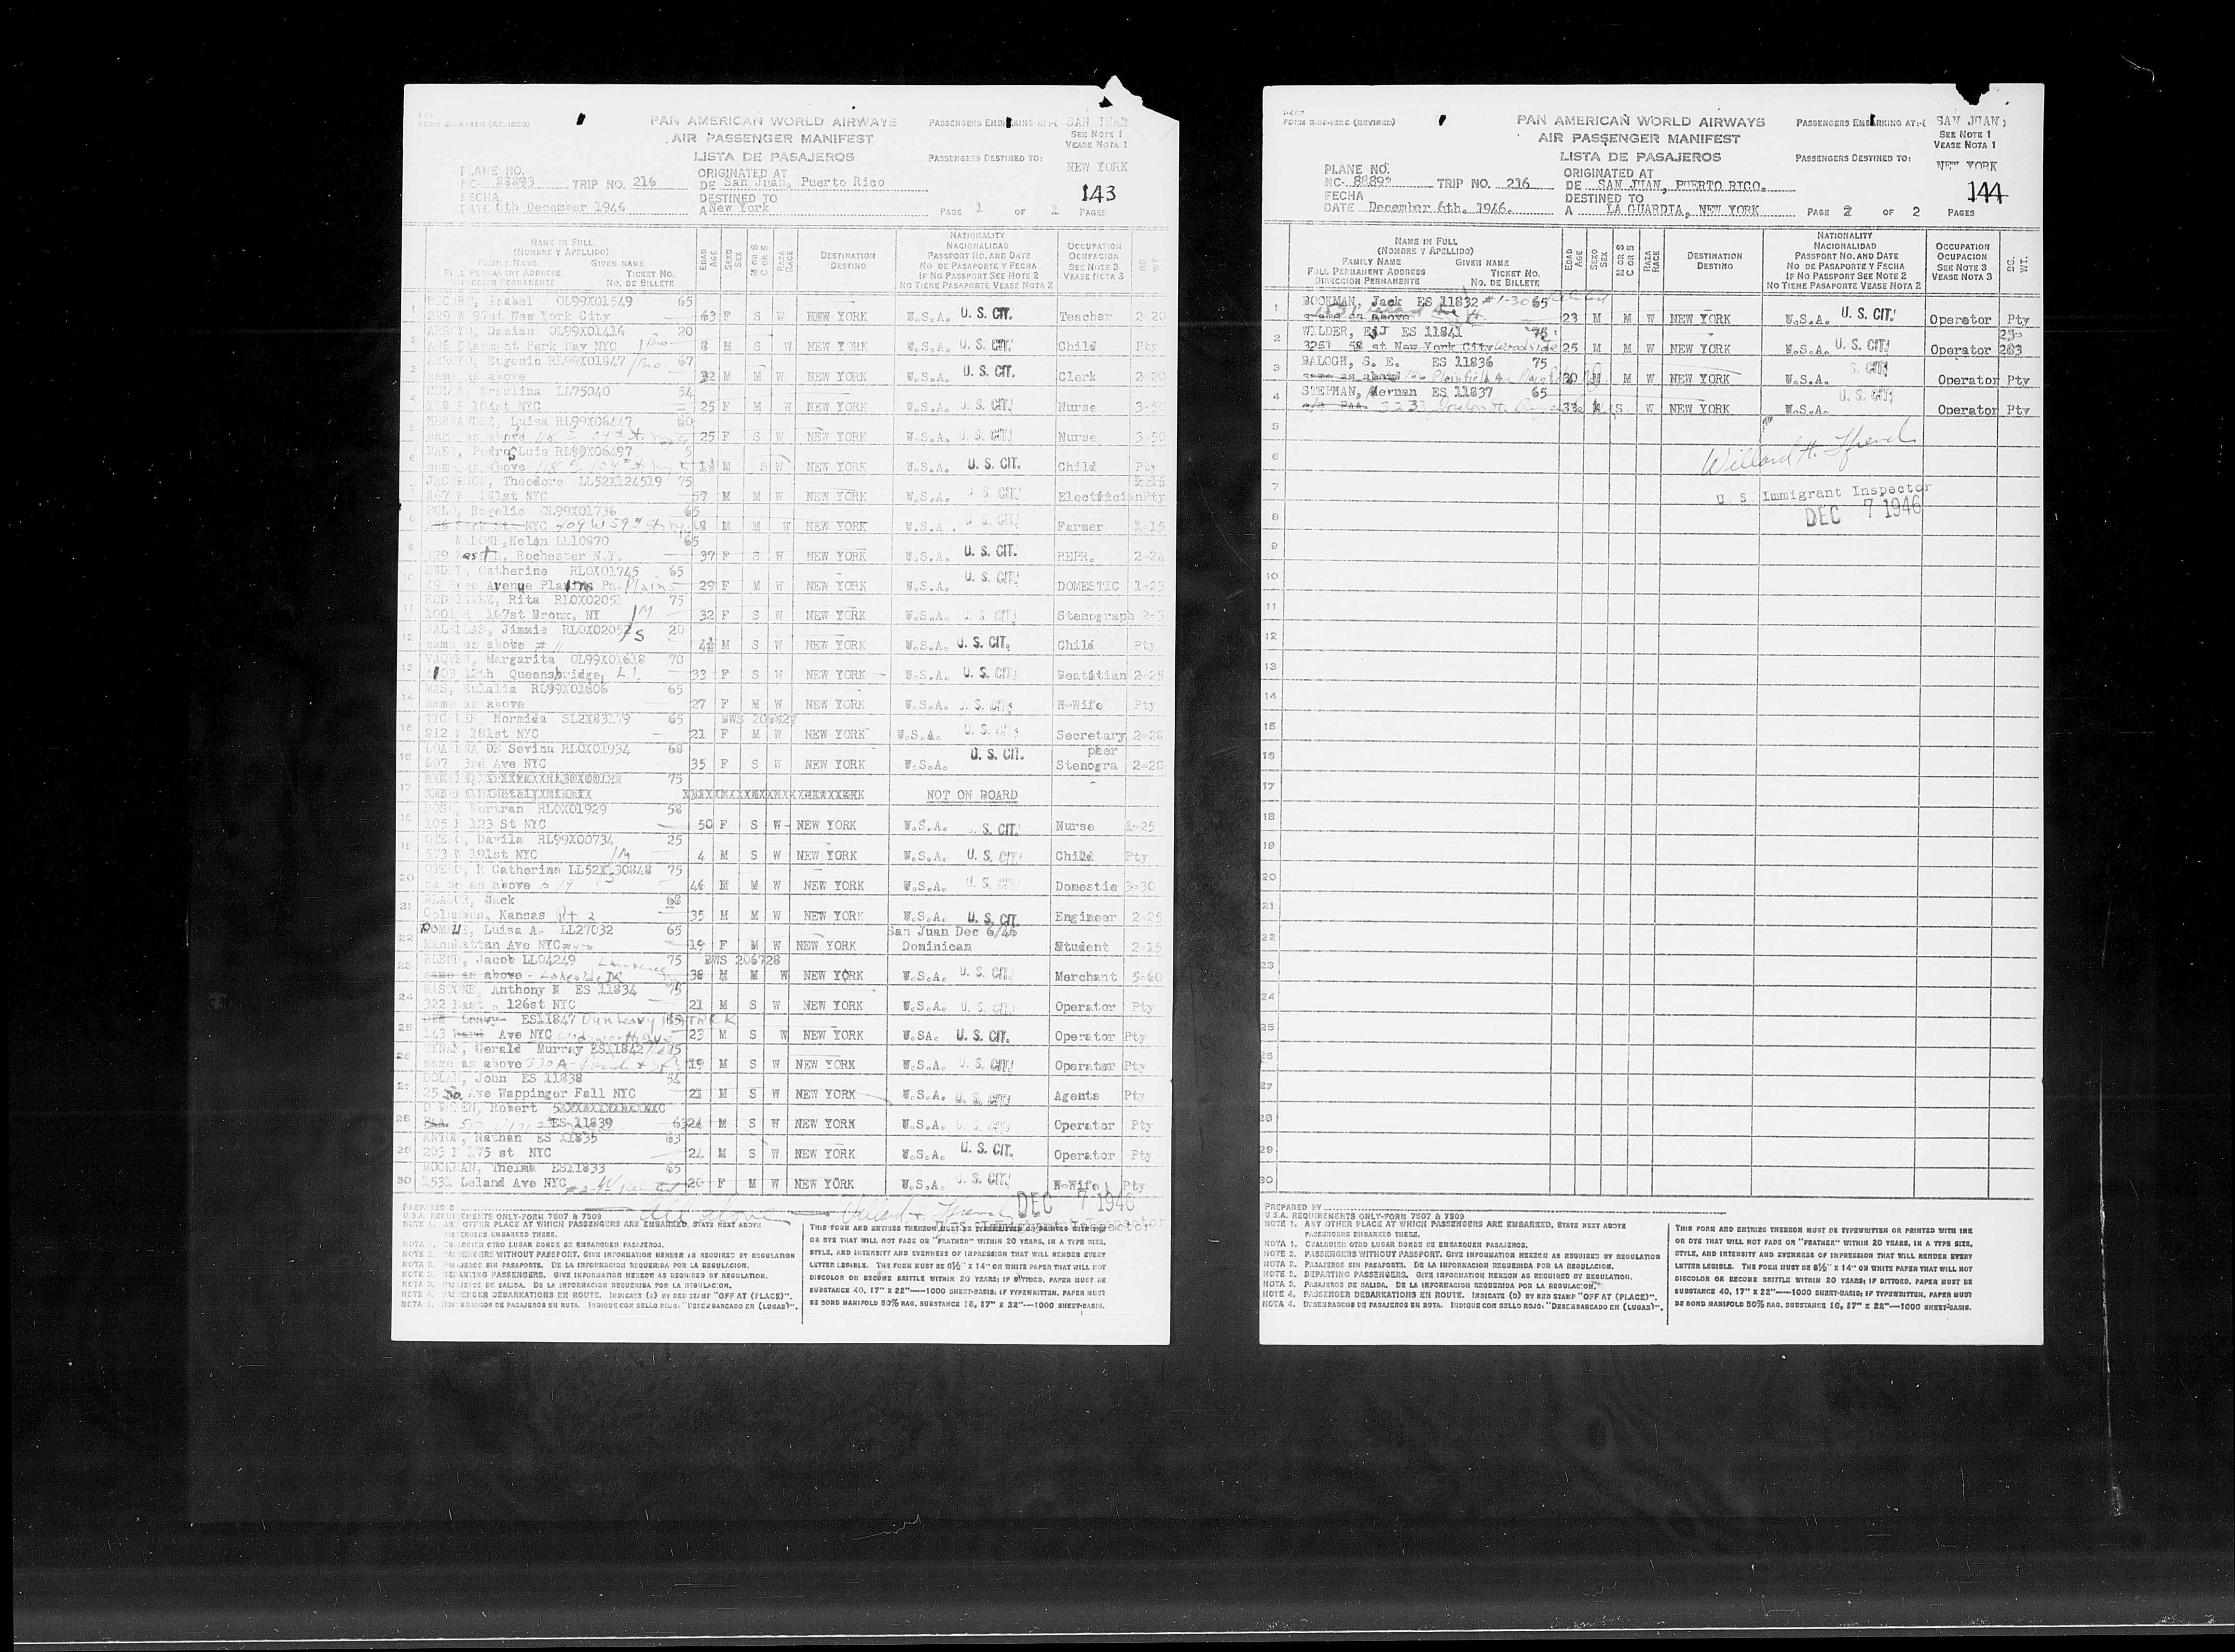 PAN AMERICAN WORLD AIRWAYS
AIR PASSENGER MANIFEST
LISTA DE PASAJEROS
PASSENGERS EMBARKING AT:( SAN JUAN
SEE NOTE 1
VEASE NOTA 1
PASSENGERS DESTINED TO:
NEW YORK
143
PLANE NO.
NC- 88893 TRIP NO. 216
ORIGINATED AT
DE San Juan, Puerto Rico
FECHA
DATE 6th December 1946
DESTINED TO
A New York
PAGE 1 OF 1 PAGES
NAME IN FULL
(NOMBRE Y APELLIDO)
FAMILY NAME GIVEN NAME
FULL PERMANENT ADDRESS TICKET NO.
DIRECCION PERMANENTE NO. DE BILLETE
EDAD AGE
SEXO SEX
M OR S
C OR S
RAZA RACE
DESTINATION
DESTINO
NATIONALITY
NACIONALIDAD
PASSPORT NO. AND DATE
NO. DE PASAPORTE Y FECHA
IF NO PASSPORT SEE NOTE 2
NO TIENE PASAPORTE VEASE NOTA 2
OCCUPATION
OCUPACION
SEE NOTE 3
VEASE NOTA 3
BG. WT.
1 Isabel OL99X01549 65
229 W 97st New York City 63 F S W NEW YORK U.S.A. U. S. CIT. Teacher 2-20
2 ARROYO, Damian OL99X01416 20
496 Claremont Park Way NYC 8 M S W NEW YORK U.S.A. U. S. CIT. Child Pty
3 Eugenio RL99X01847 67
same as above 32 M M W NEW YORK U.S.A. U. S. CIT. Clerk 2-20
4 LL75040 54
NYC 25 F M W NEW YORK U.S.A. U. S. CIT. Nurse 3-50
5 HERNANDEZ, Luisa RL99X06447
same as above 25 F S W NEW YORK U.S.A. U. S. CIT. Nurse 3-50
6 Pedro Luis RL99X06497 5
same as above M S W NEW YORK U.S.A. U. S. CIT. Child Pty
7 JACOBSON, Theodore LL52X124519 75
181st NYC 57 M M W NEW YORK U.S.A. U. S. CIT. Electrician Pty
8 POLO, Rogelio OL99X01736 65
NYC 409 W 59th St M M W NEW YORK U.S.A. U. S. CIT. Farmer 1-15
9 MALONE, Helen LL10870 65
Rochester N.Y. 37 F S W NEW YORK U.S.A. U. S. CIT. REPR. 2-24
10 Catherine RLOX01745 65
Avenue Plains Pa. 29 F M W NEW YORK U.S.A. U. S. CIT. DOMESTIC 1-23
11 RODRIGUEZ, Rita RLOX02051 75
1001 E 167st Bronx, NY 32 F S W NEW YORK U.S.A. U. S. CIT. Stenograph 2-3
12 Jimmie RLOX02052 20
same as above # 11 M S W NEW YORK U.S.A. U. S. CIT. Child Pty
13 Margarita OL99X01618 70
12th Queensbridge, L I. 33 F S W NEW YORK U.S.A. U. S. CIT. Beatitian 2-25
14 MAS, Eulalia RL99X01606 65
same as above 27 F M W NEW YORK U.S.A. U. S. CIT. H-Wife Pty
15 Normida SL2X83179 65
812 W 181st NYC 21 F M W NEW YORK U.S.A. U. S. CIT. Secretary 2-28
16 DE Sevina RLOX01934 68
607 3rd Ave NYC 35 F S W NEW YORK U.S.A. U. S. CIT. Stenogra pher 2-20
17 75
NOT ON BOARD
18 Bertran RLOX01929 58
105 E 123 St NYC 50 F S W NEW YORK U.S.A. U. S. CIT. Nurse 1-25
19 OTERO, Davila RL99X00734 25
573 W 191st NYC 4 M S W NEW YORK U.S.A. U. S. CIT. Child Pty
20 OTERO, H Catherine LL52X130848 75
same as above 46 M W NEW YORK U.S.A. U. S. CIT. Domestic 3-30
21 Jack 68
Columbus, Kansas Rt 2 35 M M W NEW YORK U.S.A. U. S. CIT. Engineer 2-25
22 Luisa A. LL27032 65 San Juan Dec 6/46
Manhattan Ave NYC 19 F M W NEW YORK Dominican Student 2-15
23 BLEND, Jacob LL04249 75 BWS 206728
same as above - Lakeside Dr Lawrence 38 M M W NEW YORK U.S.A. U. S. CIT. Merchant 5-60
24 Anthony ES 11834 75
322 East 126st NYC 21 M S W NEW YORK U.S.A. U. S. CIT. Operator Pty
25 ES11847 Dunleavy
143 Ave NYC 23 M S W NEW YORK U.SA. U. S. CIT. Operator Pty
26 Gerald Murray ES11842 75
same as above 19 M S W NEW YORK U.S.A. U. S. CIT. Operator Pty
27 John ES 11838 54
25 So. Ave Wappinger Fall NYC 21 M S W NEW YORK U.S.A. U. S. CIT. Agents Pty
28 Robert
ES 11839 63 24 M S W NEW YORK U.S.A. U. S. CIT. Operator Pty
29 ANTON, Nathan ES 11835 63
203 175 st NYC 24 M S W NEW YORK U.S.A. U. S. CIT. Operator Pty
30 BOOKMAN, Thelma ES11833 65
1531 Leland Ave NYC 20 F M W NEW YORK U.S.A. U. S. CIT. H-Wife Pty
All above Willard H. French DEC 7 1946
U. S. Immigrant Inspector
PREPARED BY
U.S.A. REQUIREMENTS ONLY-FORM 7507 & 7509
NOTE 1. ANY OTHER PLACE AT WHICH PASSENGERS ARE EMBARKED, STATE NEXT ABOVE
PASSENGERS EMBARKED THERE.
NOTA 1. CUALQUIER OTRO LUGAR DONDE SE EMBARQUEN PASAJEROS.
NOTE 2. PASSENGERS WITHOUT PASSPORT. GIVE INFORMATION HEREON AS REQUIRED BY REGULATION
NOTA 2. PASAJEROS SIN PASAPORTE. DE LA INFORMACION REQUERIDA POR LA REGULACION.
NOTE 3. DEPARTING PASSENGERS. GIVE INFORMATION HEREON AS REQUIRED BY REGULATION.
NOTA 3. PASAJEROS DE SALIDA. DE LA INFORMACION REQUERIDA POR LA REGULACION.
NOTE 4. PASSENGER DEBARKATIONS EN ROUTE. INDICATE (O) BY RED STAMP "OFF AT (PLACE)".
NOTA 4. DESEMBARCOS DE PASAJEROS EN RUTA. INDIQUE CON SELLO ROJO: "DESEMBARCADO EN (LUGAR)".
THIS FORM AND ENTRIES THEREON MUST BE TYPEWRITTEN OR PRINTED WITH INK
OR DYE THAT WILL NOT FADE OR "FEATHER" WITHIN 20 YEARS, IN A TYPE SIZE,
STYLE, AND INTENSITY AND EVENNESS OF IMPRESSION THAT WILL RENDER EVERY
LETTER LEGIBLE. THE FORM MUST BE 8½" X 14" ON WHITE PAPER THAT WILL NOT
DISCOLOR OR BECOME BRITTLE WITHIN 20 YEARS; IF DITTOED, PAPER MUST BE
SUBSTANCE 40, 17" X 22"—1000 SHEET-BASIS; IF TYPEWRITTEN, PAPER MUST
BE BOND MANIFOLD 50% RAG, SUBSTANCE 16, 17" X 22"—1000 SHEET-BASIS.
FORM (REVISED)
PAN AMERICAN WORLD AIRWAYS
AIR PASSENGER MANIFEST
LISTA DE PASAJEROS
PASSENGERS EMBARKING AT:( SAN JUAN)
SEE NOTE 1
VEASE NOTA 1
PASSENGERS DESTINED TO:
NEW YORK
144
PLANE NO.
NC- 88893 TRIP NO. 216
ORIGINATED AT
DE SAN JUAN, PUERTO RICO.
FECHA
DATE December 6th. 1946.
DESTINED TO
A LA GUARDIA, NEW YORK
PAGE 2 OF 2 PAGES
NAME IN FULL
(NOMBRE Y APELLIDO)
FAMILY NAME GIVEN NAME
FULL PERMANENT ADDRESS TICKET NO.
DIRECCION PERMANENTE NO. DE BILLETE
EDAD AGE
SEXO SEX
M OR S
C OR S
RAZA RACE
DESTINATION
DESTINO
NATIONALITY
NACIONALIDAD
PASSPORT NO. AND DATE
NO. DE PASAPORTE Y FECHA
IF NO PASSPORT SEE NOTE 2
NO TIENE PASAPORTE VEASE NOTA 2
OCCUPATION
OCUPACION
SEE NOTE 3
VEASE NOTA 3
BG. WT.
1 BOOKMAN, Jack ES 11832 #1-30 65
same as above 23 M M W NEW YORK U.S.A. U. S. CIT. Operator Pty
2 WILDER, ES 11841 75
3251 58 st New York City Woodside 25 M M W NEW YORK U.S.A. U. S. CIT. Operator 263
3 BALOGH, S. E. ES 11836 75
same as above 126 Plainfield Ave 30 M M W NEW YORK U.S.A. S. CIT. Operator Pty
4 STEPHAN, Hernan ES 11837 65
3233 S W NEW YORK U.S.A. U. S. CIT. Operator Pty
5
6
7
8
Willard H. French
U S Immigrant Inspector
DEC 7 1946
9
10
11
12
13
14
15
16
17
18
19
20
21
22
23
24
25
26
27
28
29
30
PREPARED BY
U.S.A. REQUIREMENTS ONLY-FORM 7507 & 7509
NOTE 1. ANY OTHER PLACE AT WHICH PASSENGERS ARE EMBARKED, STATE NEXT ABOVE
PASSENGERS EMBARKED THERE.
NOTA 1. CUALQUIER OTRO LUGAR DONDE SE EMBARQUEN PASAJEROS.
NOTE 2. PASSENGERS WITHOUT PASSPORT. GIVE INFORMATION HEREON AS REQUIRED BY REGULATION
NOTA 2. PASAJEROS SIN PASAPORTE. DE LA INFORMACION REQUERIDA POR LA REGULACION.
NOTE 3. DEPARTING PASSENGERS. GIVE INFORMATION HEREON AS REQUIRED BY REGULATION.
NOTA 3. PASAJEROS DE SALIDA. DE LA INFORMACION REQUERIDA POR LA REGULACION.
NOTE 4. PASSENGER DEBARKATIONS EN ROUTE. INDICATE (O) BY RED STAMP "OFF AT (PLACE)".
NOTA 4. DESEMBARCOS DE PASAJEROS EN RUTA. INDIQUE CON SELLO ROJO: "DESEMBARCADO EN (LUGAR)".
THIS FORM AND ENTRIES THEREON MUST BE TYPEWRITTEN OR PRINTED WITH INK
OR DYE THAT WILL NOT FADE OR "FEATHER" WITHIN 20 YEARS, IN A TYPE SIZE,
STYLE, AND INTENSITY AND EVENNESS OF IMPRESSION THAT WILL RENDER EVERY
LETTER LEGIBLE. THE FORM MUST BE 8½" X 14" ON WHITE PAPER THAT WILL NOT
DISCOLOR OR BECOME BRITTLE WITHIN 20 YEARS; IF DITTOED, PAPER MUST BE
SUBSTANCE 40, 17" X 22"—1000 SHEET-BASIS; IF TYPEWRITTEN, PAPER MUST
BE BOND MANIFOLD 50% RAG, SUBSTANCE 16, 17" X 22"—1000 SHEET-BASIS.